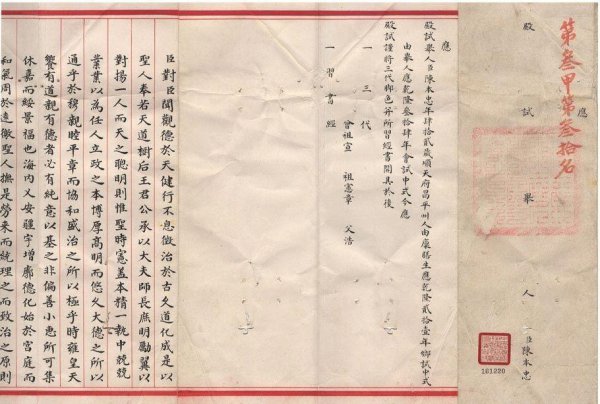 第叁甲第叁拾名
應
殿試舉人臣陳本忠
161220
應
殿試舉人臣陳本忠年肆拾貳歲順天府昌平州人由廩膳生應乾隆貳拾壹年鄉試中式
由舉人應乾隆叁拾肆年會試中式今應
殿試謹將三代腳色并所習經書開具於後
一三代
曾祖宣 祖憲章 父浩
一習書經
臣對臣聞觀德於天健行不息徵治於古久道化成是以
聖人奉若天道樹后王君公承以大夫師長庶明勵翼以
對揚一人而天之聰明則惟聖時憲蓋本精一執中兢兢
業業以為任人立政之本博厚高明而悠久大德之所以
通乎於穆親睦平章而協和盛治之所以極乎時雍皇天
饗有道親有德者必有純意以基之非偏善小惠所可集
休嘉而綏景福也海内乂安疆宇增廓德化始於宮庭而
和氣周於遠徼聖人撫是勞來而統理之而致治之原則